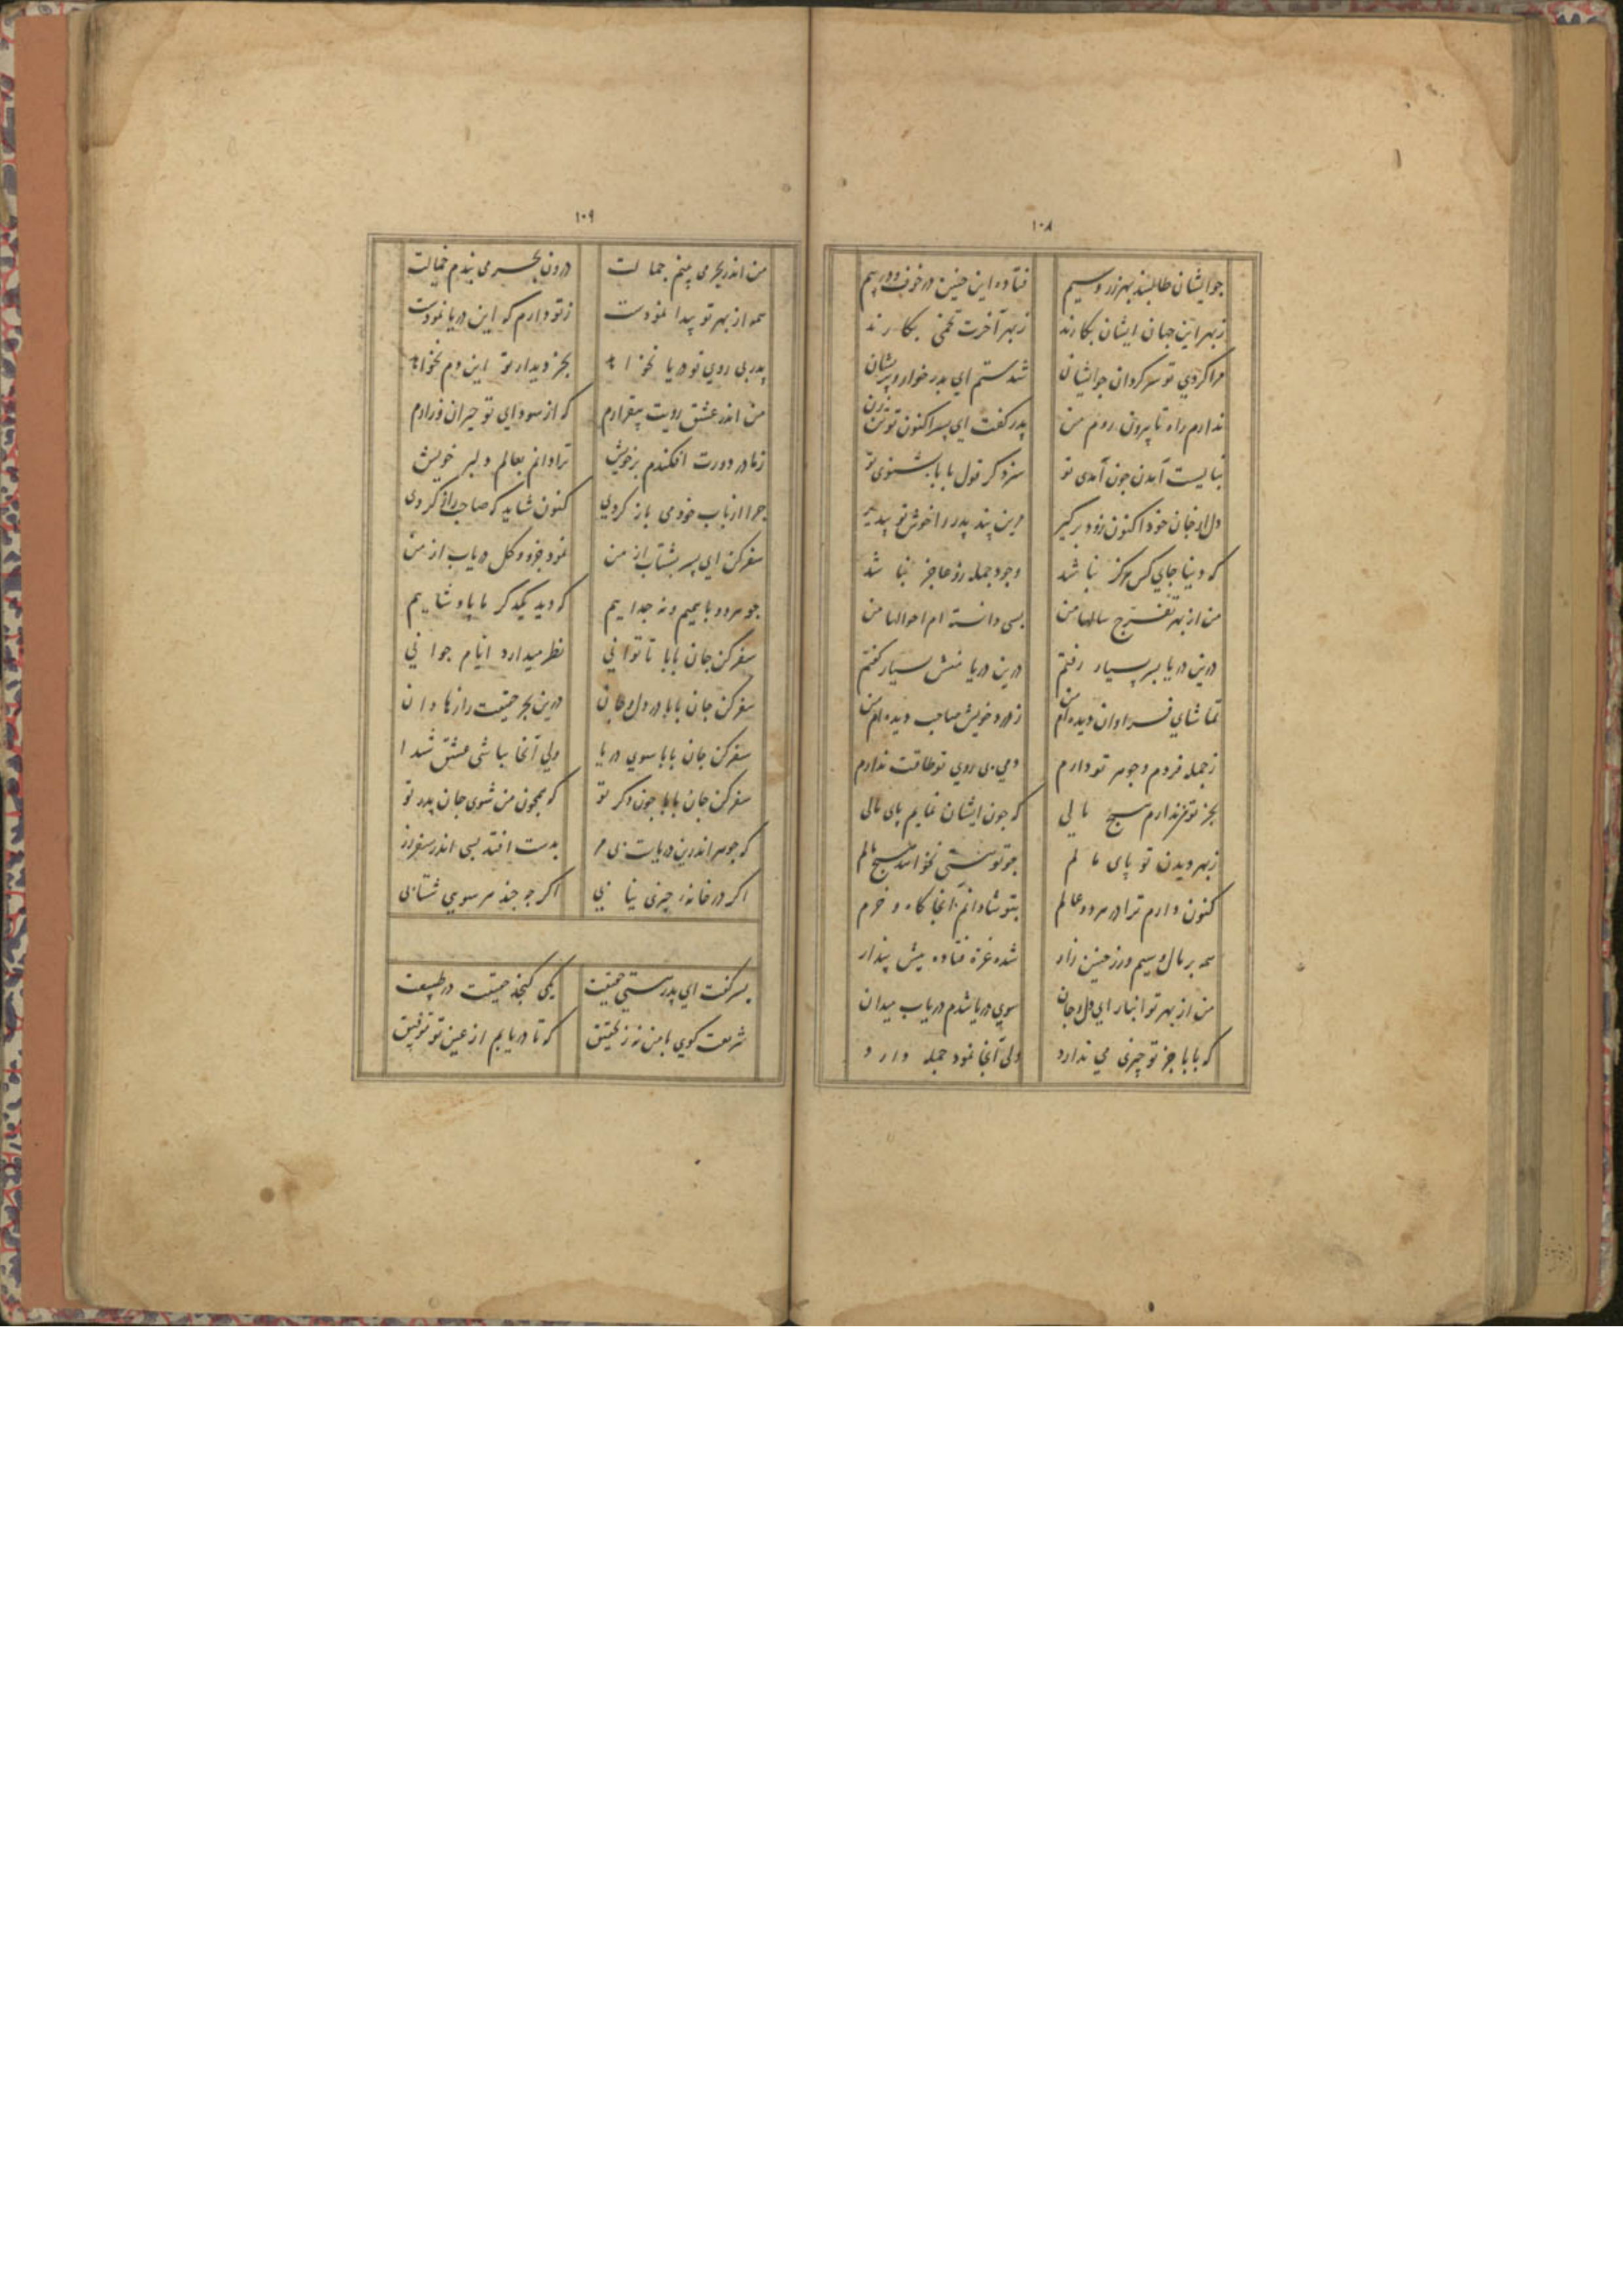 ۱۰۸
جو ایشان طالبند بهر زر و سیم
فتاده این چنین در خوف و در بیم
ز بهر این جهان ایشان بکارند
ز بهر آخرت تخمی بکارند
مرا کردی تو سرکردان جو ایشان
شدستم ای پدر خوار و پریشان
ندارم راه تا بیرون روم من
پدر کفت ای پسر اکنون تو تن زن
نبایست آمدن جون آمدی تو
سزد کر قول بابا بشنوی تو
دل از جان خود اکنون زود برکیر
وین پند پدر را خوش تو بپذیر
که دنیا جای کس هرکز نباشد
وجود جمله جز نباشد
من از بهر تفرج سالها من
بسی دانسته ام احوالها من
درین دریا بسر بسیار رفتم
درین دریا منش بسیار کفتم
تماشای فراوان دیده ام من
ز درد خویش صاحب دیده ام من
ز جمله فردم و جوهر تو دارم
دمی بی روی تو طاقت ندارم
بجز تو من ندارم هیچ مالی
که جون ایشان نمایم پای مالی
ز بهر دیدن تو پای مالم
جو تو هستی نخواهد هیچ مالم
کنون دارم ترا در هر دو عالم
بتو شادانم آنجا کاه و خرم
همه بر مال و سیم و زر چنین زار
شده غره فتاده پیش پندار
من از بهر تو انبار ای دل و جان
سوی دریا شدم دریاب میدان
که بابا جز تو چیزی می ندارد
ولی آنجا نمود جمله دارد
۱۰۹
من اندر بحر می بینم جمالت
درون بحر می بندم خیالت
همه از بهر تو پیدا نمودست
ز تو دارم که این دریا نمودست
پدر بی روی تو دریا نخواهد
بجز دیدار تو این دم نخواهد
من اندر عشق رویت بیقرارم
که از سودای تو حیران و زارم
ز مادر دورت افکندم بر خویش
ترا دانم بعالم دلبر خویش
جرا از باب خود می باز کردی
کنون شاید که صاحب راز کردی
سفر کن ای پسر بشتاب از من
نمود جزو و کل دریاب از من
جو هر دو با همیم و نه جداییم
که دید یکدکر با پادشاهیم
سفر کن جان بابا تا توانی
نظر میدار در ایام جوانی
سفر کن جان بابا در دل و جان
درین بحر حقیقت رازها دان
سفر کن جان بابا سوی دریا
ولی آنجا بباشی عشق شیدا
سفر کن جان بابا جون دکر تو
که همجون من شوی جان پدر تو
که جوهر اندرین دریات بی مر
بدست افتد بسی اندر سفر در
اکر در خانه چیزی نیابی
اکر جه جند هر سوی شتابی
پسر کفت ای پدر هستی حقیقت
یکی کنجد حقیقت در طبیعت
شریعت کوی با من نه ز تحقیق
که تا دریابم از عین تو توفیق